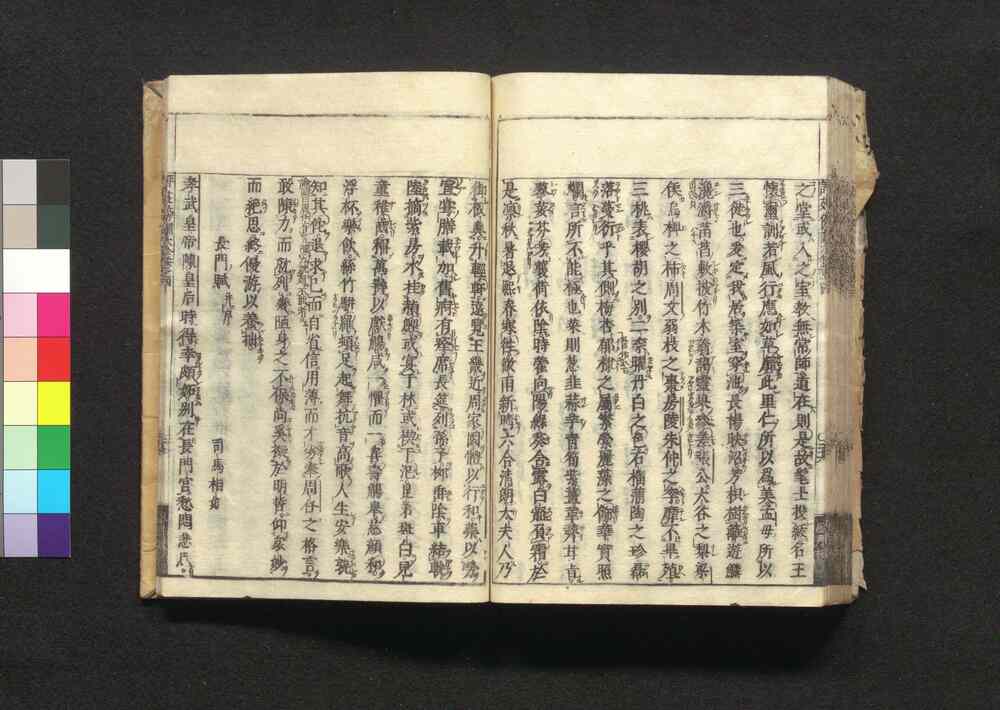 之堂或入之室教無常師道在則是故髦士投紱名王
懷璽訓若風行應如草靡此里仁所以爲美孟母所以
三徙也爰定我居築室穿池長楊映沼芳枳樹籬遊鱗
瀺灂菡萏敷披竹木蓊藹靈果參差張公大谷之梨梁
侯烏椑之柿周文弱枝之棗房陵朱仲之李靡不畢殖
三桃表櫻胡之別二柰曜丹白之色石榴蒲陶之珍磊
落蔓衍乎其側梅杏郁棣之屬繁榮麗藻之飾華實照
爛言所不能極也菜則葱韭蒜芋青筍紫薑堇薺甘旨
蓼荾芬芳蘘荷依陰時藿向陽綠葵含露白薤負霜於
是凜秋暑退熙春寒往微雨新晴六合清朗太夫人乃
御板輿升輕軒遠覽王畿近周家園體以行和藥以勞
宣常膳載加舊痾有痊席長筵列孫子柳垂陰車結軌
陸摘紫房水挂赬鯉或宴于林或禊于汜昆弟斑白兒
童稚齒稱萬壽以獻觴咸一懼而一喜壽觴舉慈顏和
浮杯樂飲絲竹駢羅頓足起舞抗音高歌人生安樂孰
知其他退求己而自省信用薄而才劣奉周任之格言
敢陳力而就列幾陋身之不保尚奚擬於明哲仰衆妙
而絕思終優游以養拙
長門賦并序
司馬相如
孝武皇帝陳皇后時得幸頗妬別在長門宮愁悶悲思